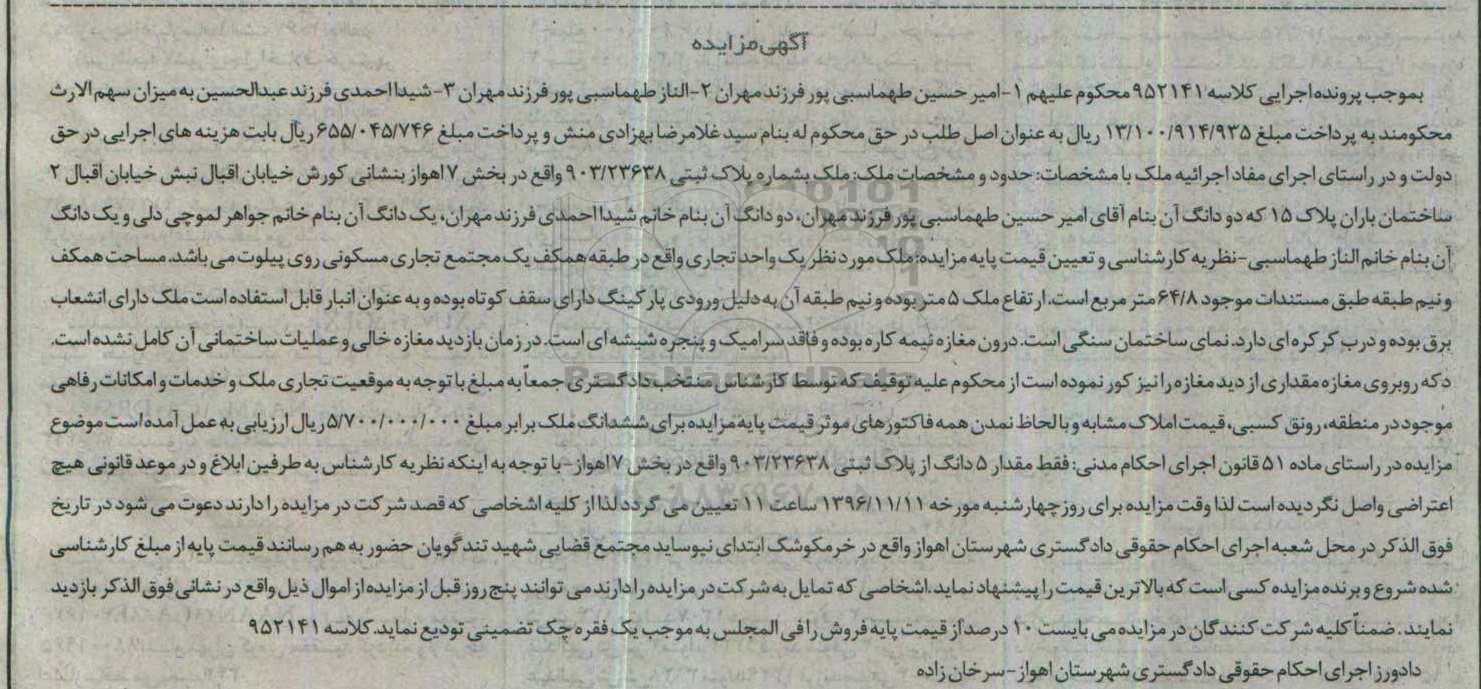 آگهی مزایده
بموجب پرونده اجرایی کلاسه ۹۵۲۱۴۱ محکوم علیهم ۱-امیر حسین طهماسبی پور فرزند مهران ۲-الناز طهماسبی پور فرزند مهران ۳-شیدا احمدی فرزند عبدالحسین به میزان سهم الارث
محکومند به پرداخت مبلغ ۱۳/۱۰۰/۹۱۴/۹۳۵ ریال به عنوان اصل طلب در حق محکوم له بنام سید غلامرضا بهزادی منش و پرداخت مبلغ ۶۵۵/۰۴۵/۷۴۶ ریال بابت هزینه های اجرایی در حق
دولت و در راستای اجرای مفاد اجرائیه ملک با مشخصات: حدود و مشخصات ملک: ملک بشماره پلاک ثبتی ۹۰۳/۲۳۶۳۸ واقع در بخش ۷ اهواز بنشانی کورش خیابان اقبال نبش خیابان اقبال ۲
ساختمان باران پلاک ۱۵ که دو دانگ آن بنام آقای امیر حسین طهماسبی پور فرزند مهران، دو دانگ آن بنام خانم شیدا احمدی فرزند مهران، یک دانگ آن بنام خانم جواهر لموچی دلی و یک دانگ
آن بنام خانم الناز طهماسبی-نظریه کارشناسی و تعیین قیمت پایه مزایده: ملک مورد نظر یک واحد تجاری واقع در طبقه همکف یک مجتمع تجاری مسکونی روی پیلوت می باشد. مساحت همکف
و نیم طبقه طبق مستندات موجود ۶۴/۸ متر مربع است. ارتفاع ملک ۵ متر بوده و نیم طبقه آن به دلیل ورودی پارکینگ دارای سقف کوتاه بوده و به عنوان انبار قابل استفاده است ملک دارای انشعاب
برق بوده و درب کرکره ای دارد. نمای ساختمان سنگی است. درون مغازه نیمه کاره بوده و فاقد سرامیک و پنجره شیشه ای است. در زمان بازدید مغازه خالی و عملیات ساختمانی آن کامل نشده است.
دکه روبروی مغازه مقداری از دید مغازه را نیز کور نموده است از محکوم علیه توقیف که توسط کارشناس منتخب دادگستری جمعاً به مبلغ با توجه به موقعیت تجاری ملک و خدمات و امکانات رفاهی
موجود در منطقه، رونق کسبی، قیمت املاک مشابه و با لحاظ نمدن همه فاکتورهای موثر قیمت پایه مزایده برای ششدانگ ملک برابر مبلغ ۵/۷۰۰/۰۰۰/۰۰۰ ریال ارزیابی به عمل آمده است موضوع
مزایده در راستای ماده ۵۱ قانون اجرای احکام مدنی: فقط مقدار ۵ دانگ از پلاک ثبتی ۹۰۳/۲۳۶۳۸ واقع در بخش ۷ اهواز-با توجه به اینکه نظریه کارشناس به طرفین ابلاغ و در موعد قانونی هیچ
اعتراضی واصل نگردیده است لذا وقت مزایده برای روز چهارشنبه مورخه ۱۳۹۶/۱۱/۱۱ ساعت ۱۱ تعیین می گردد لذا از کلیه اشخاصی که قصد شرکت در مزایده را دارند دعوت می شود در تاریخ
فوق الذکر در محل شعبه اجرای احکام حقوقی دادگستری شهرستان اهواز واقع در خرمکوشک ابتدای نیوساید مجتمع قضایی شهید تندگویان حضور به هم رسانند قیمت پایه از مبلغ کارشناسی
شده شروع و برنده مزایده کسی است که بالاترین قیمت را پیشنهاد نماید. اشخاصی که تمایل به شرکت در مزایده را دارند می توانند پنج روز قبل از مزایده از اموال ذیل واقع در نشانی فوق الذکر بازدید
نمایند. ضمناً کلیه شرکت کنندگان در مزایده می بایست ۱۰ درصد از قیمت پایه فروش را فی المجلس به موجب یک فقره چک تضمینی تودیع نماید. کلاسه ۹۵۲۱۴۱
دادورز اجرای احکام حقوقی دادگستری شهرستان اهواز-سرخان زاده
ParsNamadData